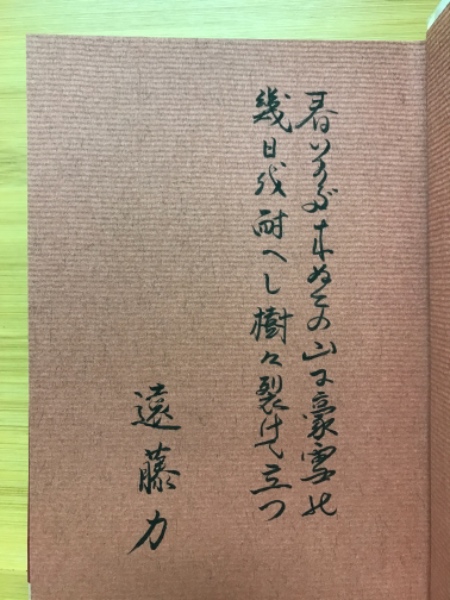 春いまだ来ぬこの山に豪雪の
幾日我耐へし樹々裂けて立つ
遠藤力